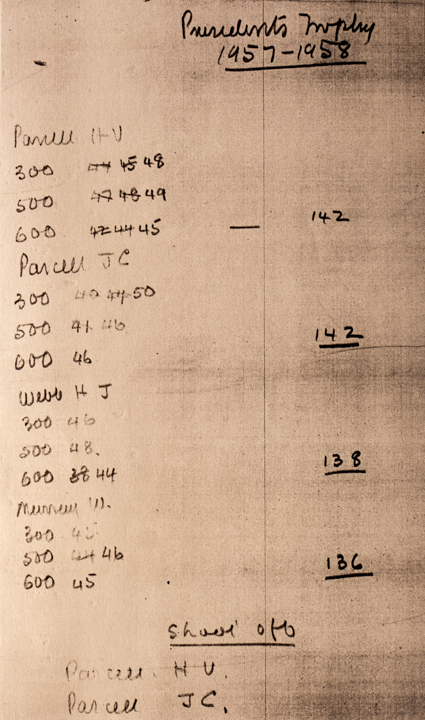 Presidents Trophy
1957-1958
Parcell H V
300 44 45 48
500 47 48 49
600 42 44 45 — 142
Parcell J C
300 40 44 50
500 41 46 142
600 46
Webb H J
300 46
500 48. 138
600 38 44
Murray W.
300 45
500 44 46 136
600 45
Shoot off
Parcell. H V.
Parcell J C.